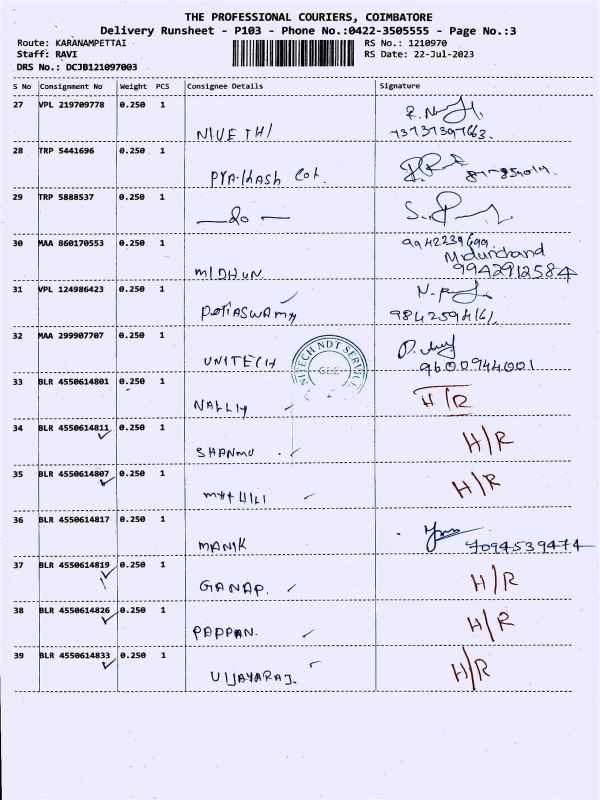 THE PROFESSIONAL COURIERS, COIMBATORE
Delivery Runsheet - P103 - Phone No.:0422-3505555 - Page No.:3
Route: KARANAMPETTAI RS No.: 1210970
Staff: RAVI RS Date: 22-Jul-2023
DRS No.: DCJB121097003
S No Consignment No Weight PCS Consignee Details Signature
27 VPL 219709778 0.250 1
NIVETHI
28 TRP 5441696 0.250 1
29 TRP 5888537 0.250 1
do
30 MAA 860170553 0.250 1
MIDHUN 9942912584
31 VPL 124986423 0.250 1
32 MAA 299907707 0.250 1
UNITECH 9600944001
UNITECH NDT SERVICE
33 BLR 4550614801 0.250 1
H/R
34 BLR 4550614811 0.250 1
SHANMU H/R
35 BLR 4550614807 0.250 1
MYTHILI H/R
36 BLR 4550614817 0.250 1
MANIK 7094539474
37 BLR 4550614819 0.250 1
GANAP. H/R
38 BLR 4550614826 0.250 1
PAPPAN. H/R
39 BLR 4550614833 0.250 1
VIJAYARAJ. H/R